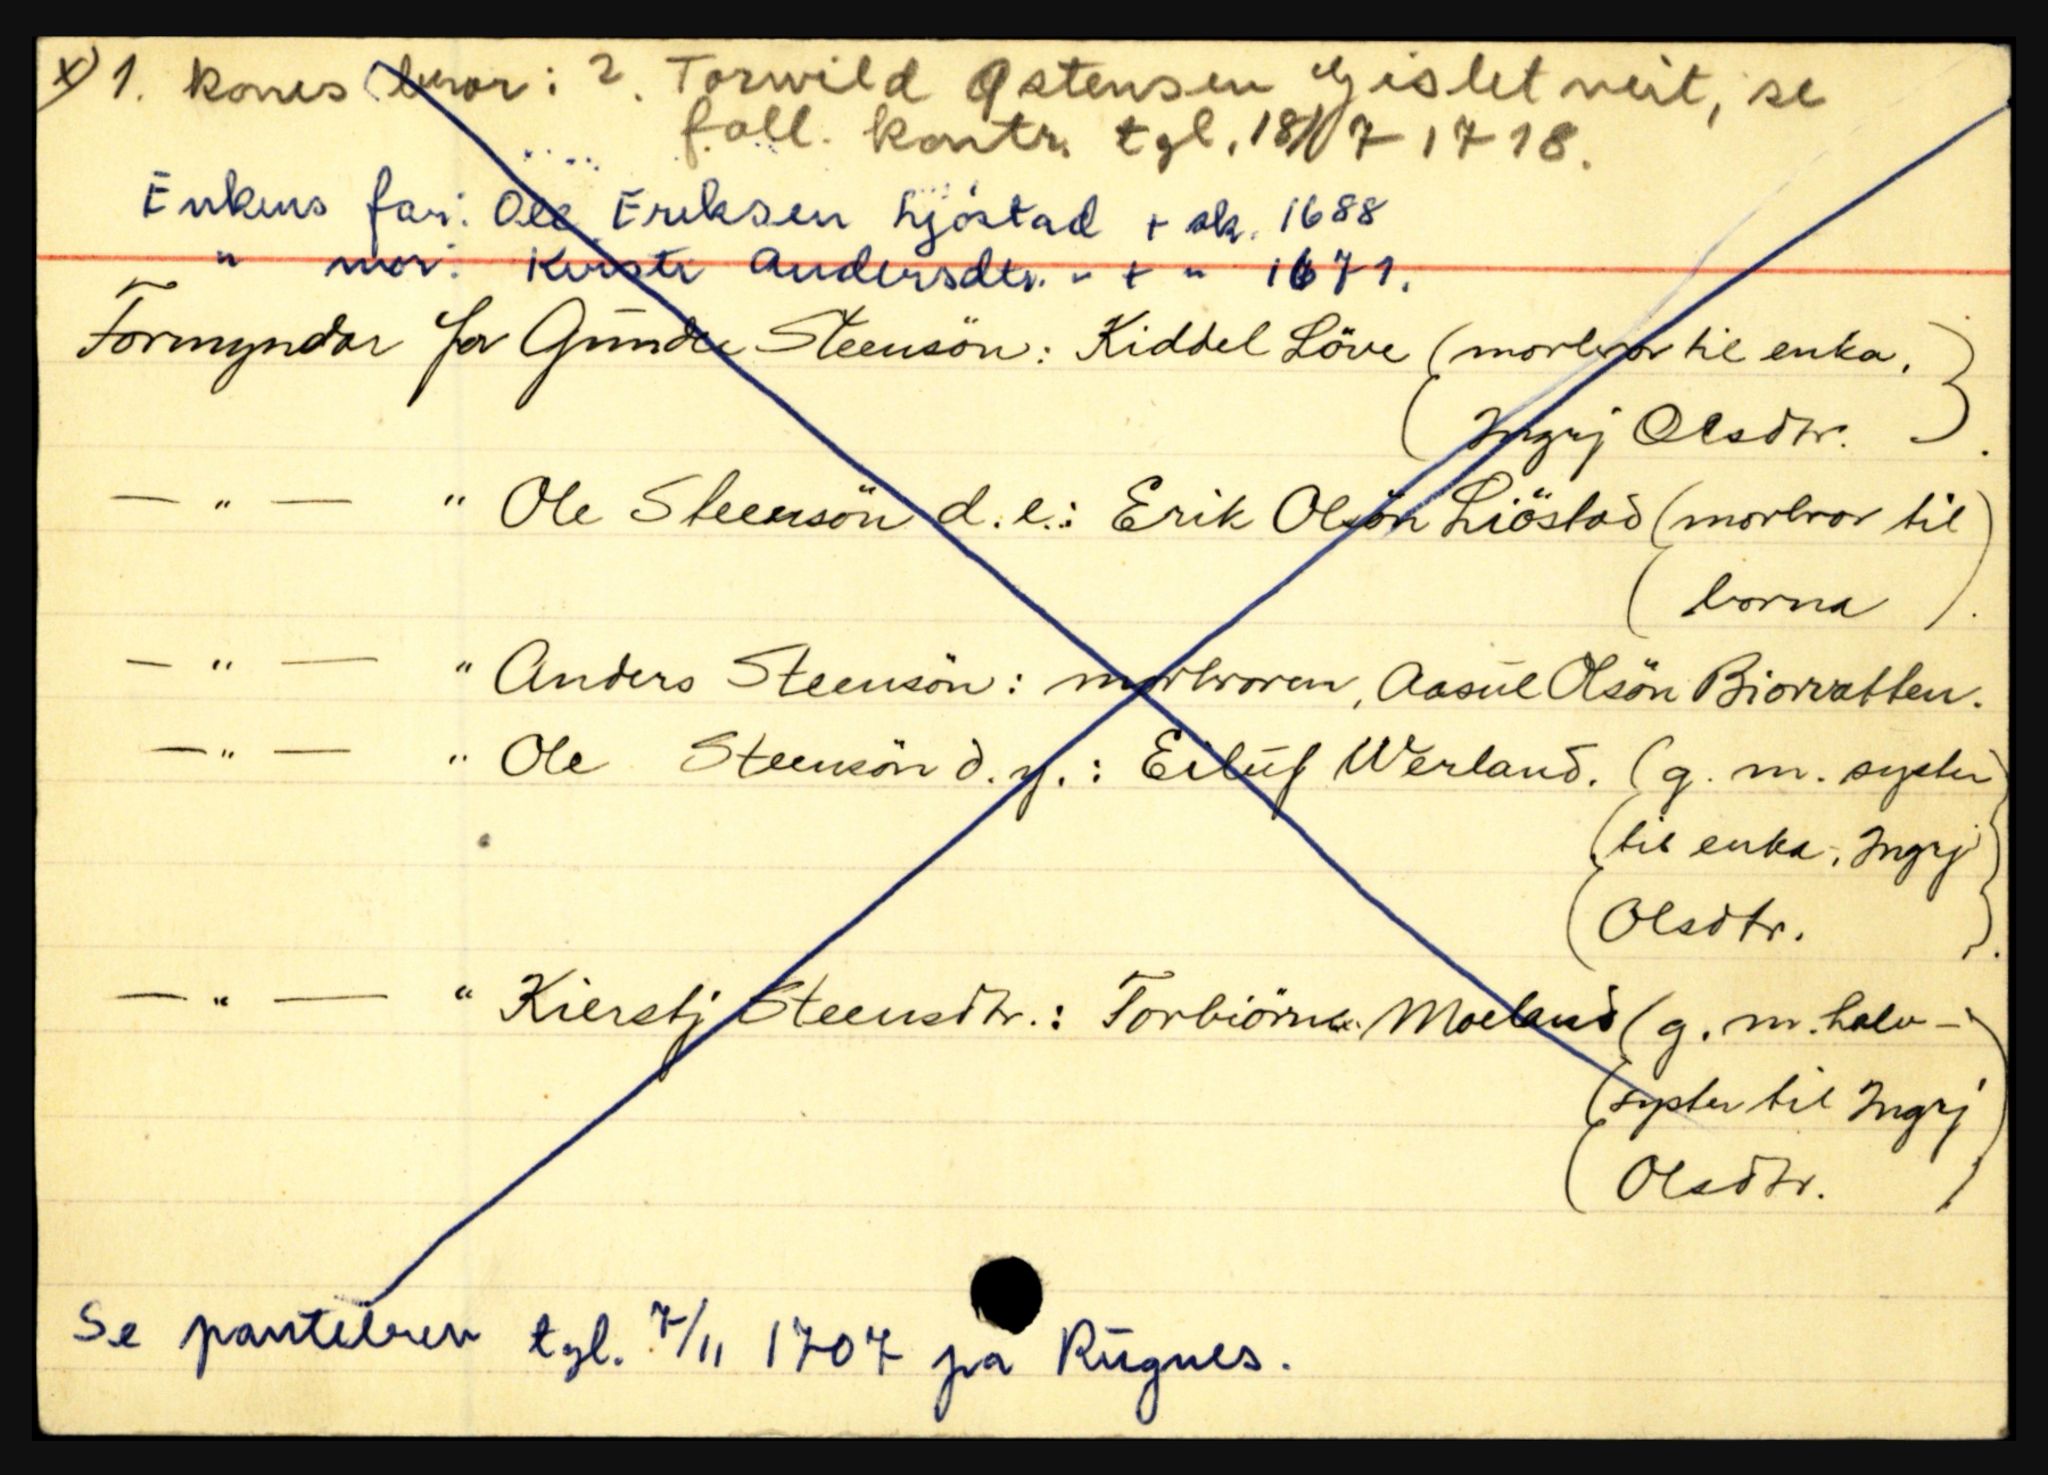 x) 1. kones bror: 2. Torwild Østensen Gjisletveit, se
fall. kontr. tgl. 18/7 1718.
Enkens far: Ole Eriksen Ljøstad + sk. 1688
" mor: Kirsti Andersdtr. - + " 1671.
Formyndar for Gunder Steensön: Kiddel Löve (morbror til enka,
Ingrj Olsdtr.)
— " — " Ole Steensön d.e.: Erik Olsön Liöstad (morbror til
borna).
— " — " Anders Steensön: morbroren, Aasul Olsön Biorvatten.
— " — " Ole Steensön d.y.: Eiluf Werland. (g. m. syster
til enka, Ingrj
Olsdtr.).
— " — " Kierstj Steensdtr.: Torbiörn Moeland (g. m. halv-
syster til Ingrj
Olsdtr.)
Se pantebrev tgl. 7/11 1707 på Rugnes.